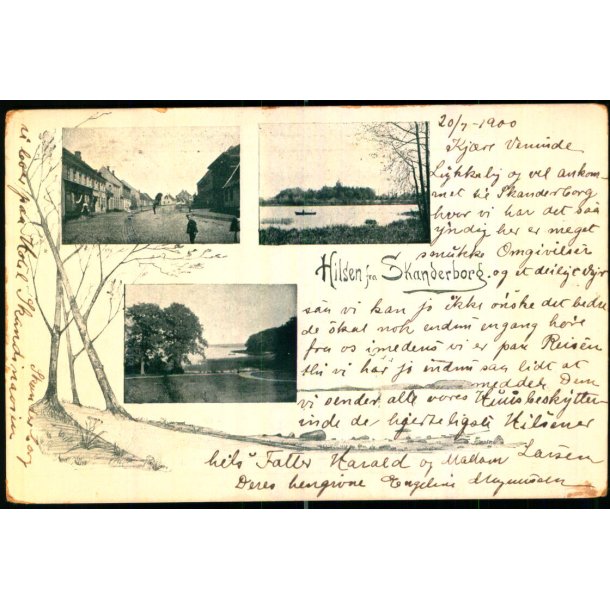 20/7-1900
Kjære Veninde
Lykkelig og vel ankom-
met til Skanderborg
hvor vi har det saa
yndig her er meget
smukke Omgivelser
Hilsen fra Skanderborg.
og et deiligt Vejr
saa vi kan jo ikke ønske det bedre
de skal nok endnu engang høre
fra os imedens vi er paa Reisen
thi vi har jo endnu saa lidt at
meddele Dem
vi sender alle vores Huusbeskytter-
inde de hjerteligste Hilsener
hils Fatter Harald og Madam Larsen
Deres hengivne Engeline
vi boe paa Hotel Skandinavien
Skanderborg